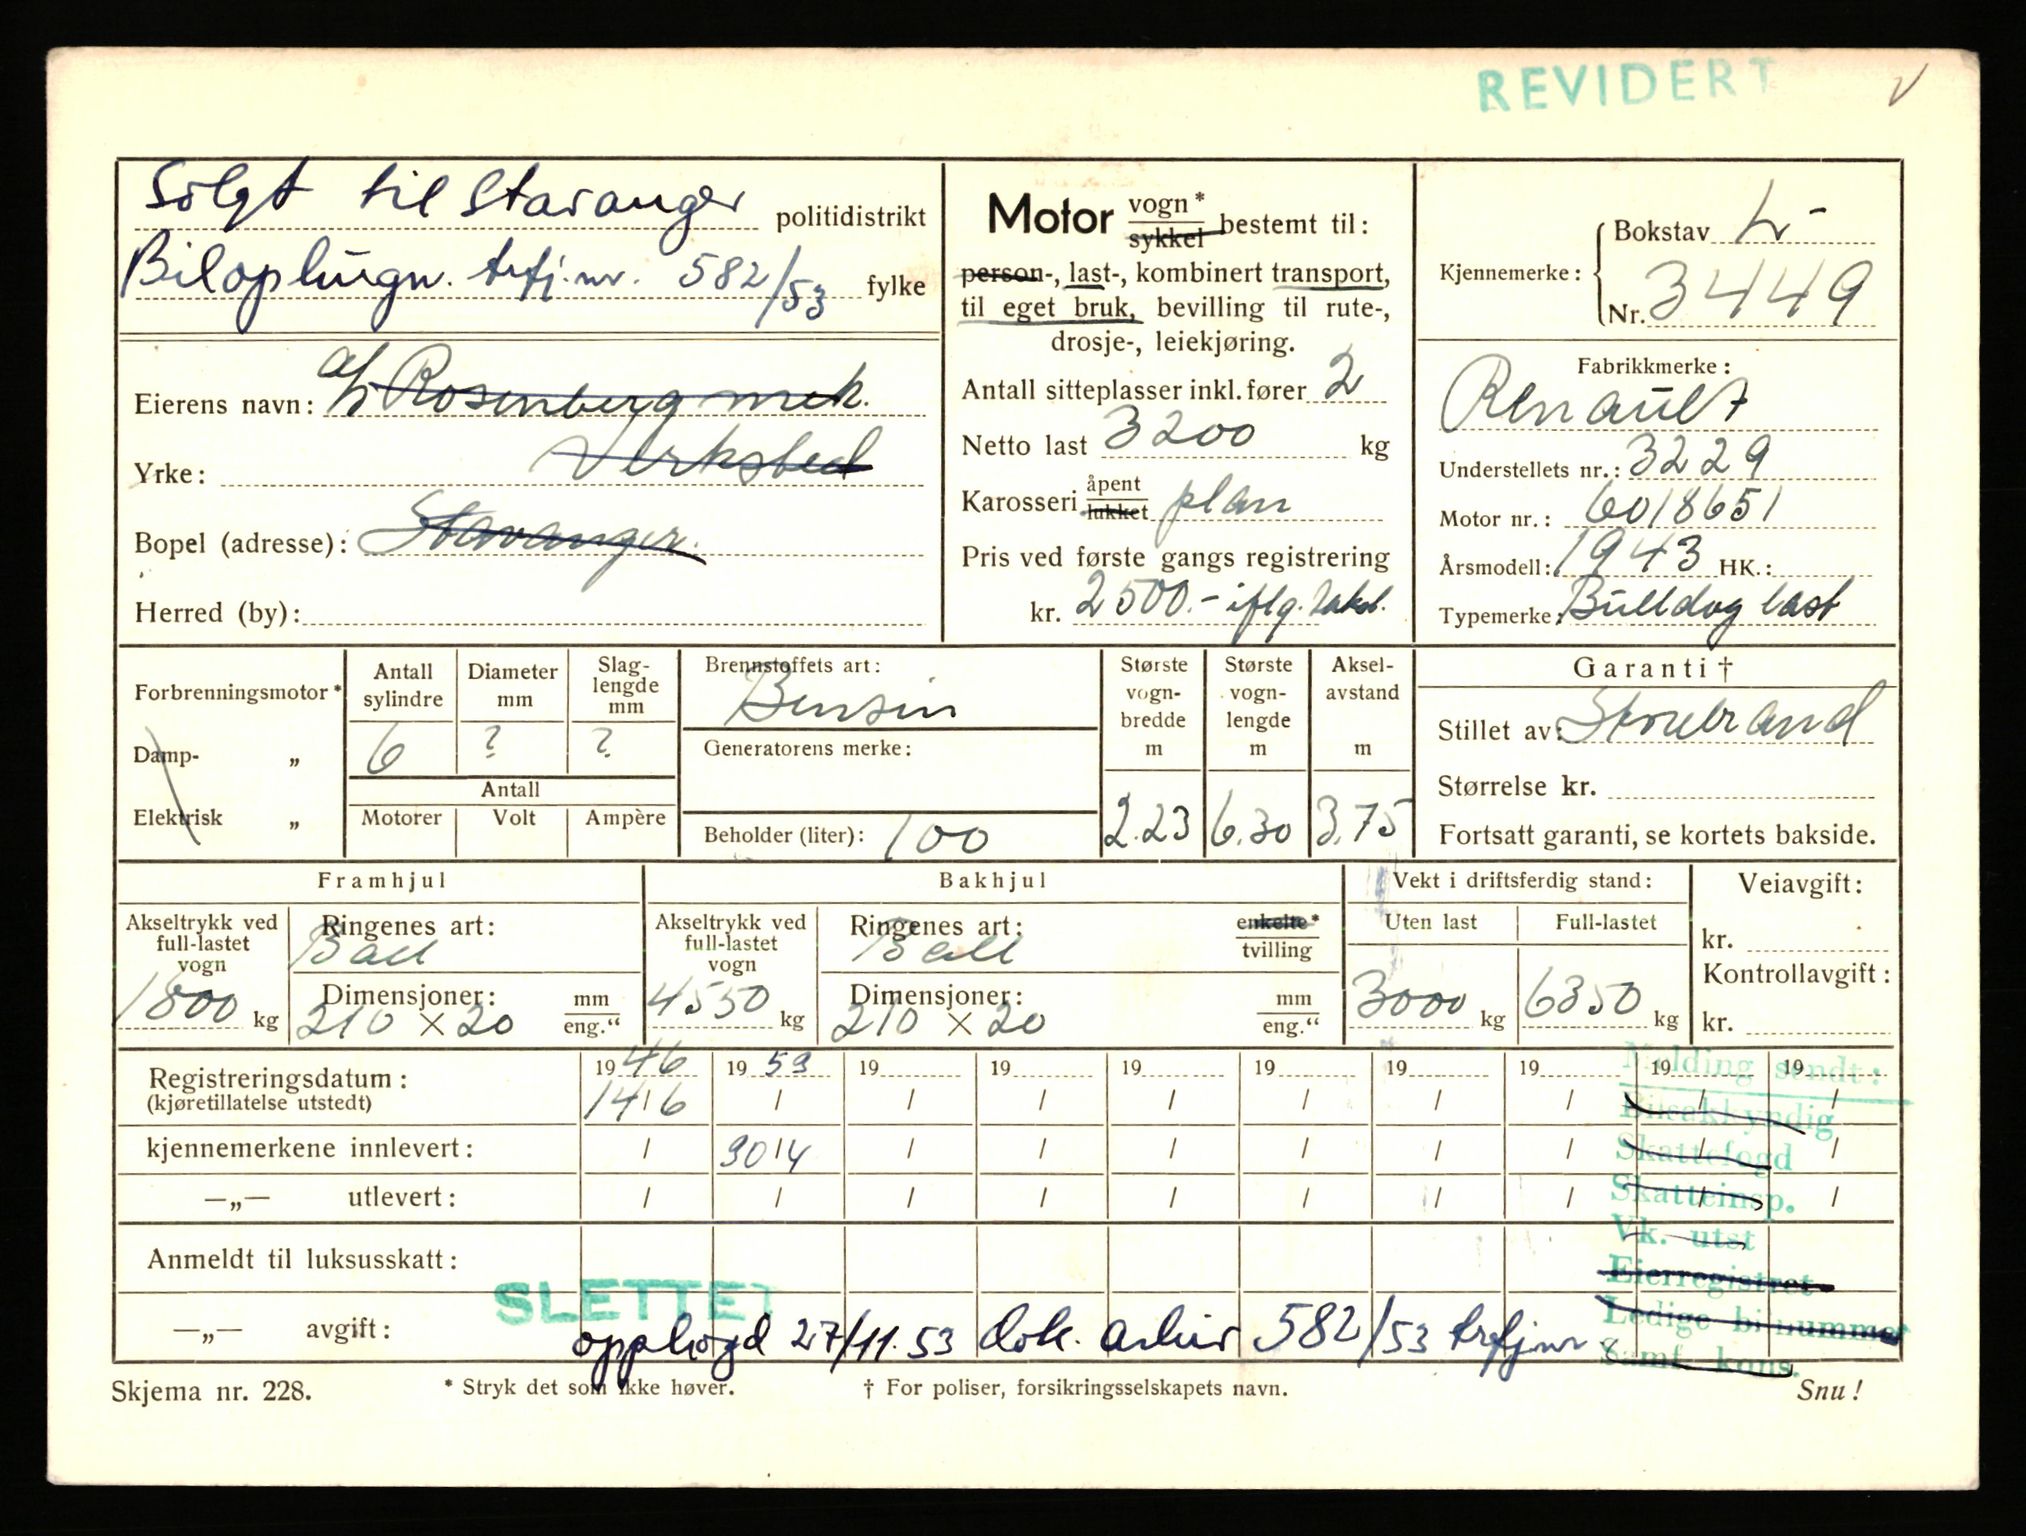 REVIDERT
Solgt til Stavanger politidistrikt
Biloplugn. trfj.nr. 582/53 fylke
Eierens navn: a/s Rosenberg mek.
Yrke: Verksted
Bopel (adresse): Stavanger.
Herred (by):
Motor vogn* sykkel bestemt til:
person-, last-, kombinert transport,
til eget bruk, bevilling til rute-,
drosje-, leiekjøring.
Antall sitteplasser inkl. fører 2
Netto last 3200 kg
Karosseri åpent lukket plan
Pris ved første gangs registrering
kr. 2500.- iflg. takst.
Kjennemerke: Bokstav L-
Nr. 3449
Fabrikkmerke:
Renault
Understellets nr.: 3229
Motor nr.: 6018651
Årsmodell: 1943 HK.:
Typemerke: Bulldog last
Forbrenningsmotor*
Damp- „
Elektrisk „
Antall sylindre
6
Diameter mm
?
Slag-lengde mm
?
Antall
Motorer Volt Ampère
Brennstoffets art:
Bensin
Generatorens merke:
Beholder (liter): 100
Største vogn-bredde m
2.23
Største vogn-lengde m
6.30
Aksel-avstand m
3.75
Garanti †
Stillet av: Storebrand
Størrelse kr.
Fortsatt garanti, se kortets bakside.
Framhjul
Akseltrykk ved full-lastet vogn
1800 kg
Ringenes art:
Ball
Dimensjoner: mm eng.“
210 × 20
Bakhjul
Akseltrykk ved full-lastet vogn
4550 kg
Ringenes art: enkelte* tvilling
Ball
Dimensjoner: mm eng.“
210 × 20
Vekt i driftsferdig stand:
Uten last Full-lastet
3000 kg 6350 kg
Veiavgift:
kr.
Kontrollavgift:
kr.
Registreringsdatum: 1946 1953 19 19 19 19 19 19 19 19
(kjøretillatelse utstedt) 14/6 / / / / / / / / /
kjennemerkene innlevert: / 30/4 / / / / / / / /
—„— utlevert: / / / / / / / / / /
Anmeldt til luksusskatt:
—„— avgift:
SLETTET
opphogd 27/11.53 dok. arkiv 582/53 trfjnr
Melding sendt:
Bilsakkyndig
Skattefogd
Skatteinsp.
Vk. utst
Eierregistret
Ledige bi nummer
Samf. kons.
Skjema nr. 228.
* Stryk det som ikke høver.
† For poliser, forsikringsselskapets navn.
Snu!